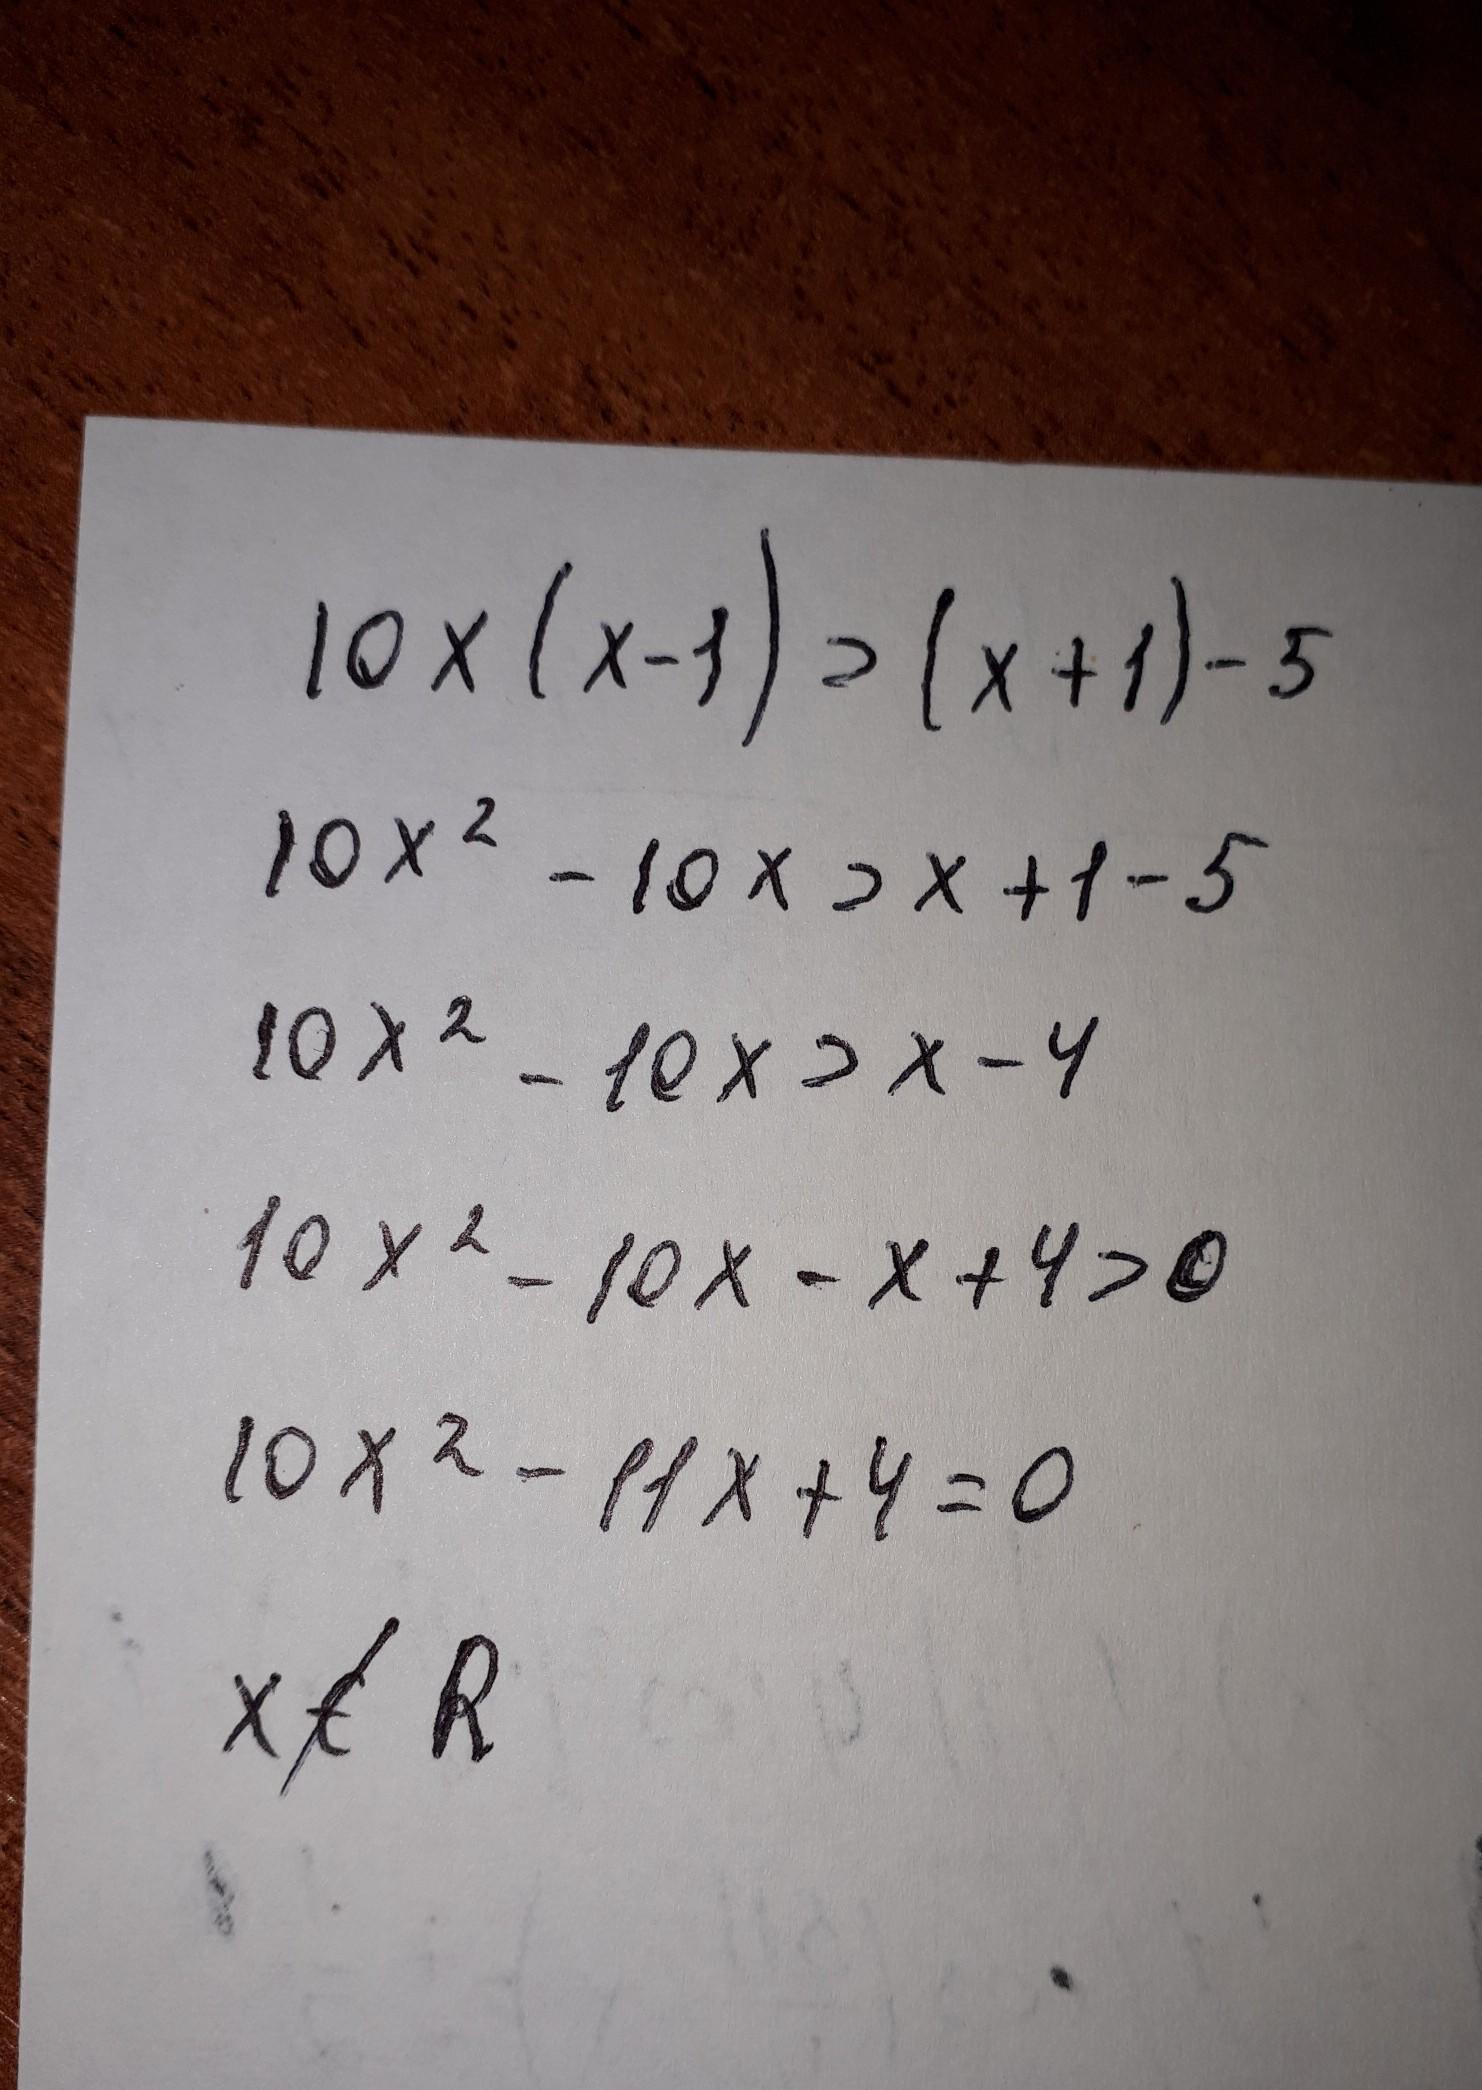 10x(x-1)>(x+1)-5
10x² - 10x > x + 1 - 5
10x² - 10x > x - 4
10x² - 10x - x + 4 > 0
10x² - 11x + 4 = 0
x ∉ R